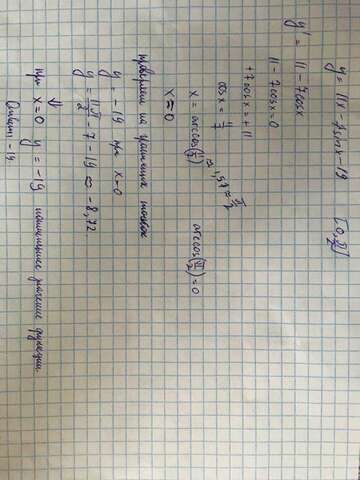 y = 11x - 7sinx - 19 [0, π/2]
y' = 11 - 7cosx
11 - 7cosx = 0
+7cosx = +11
cosx = 11/7
x = arccos(11/7) ≈ 1,57 = π/2 arccos(11/7) = 0
x ≈ 0
проверяем на граничных точках
y = -19 при x=0
y = 11π/2 - 7 - 19 ⇔ -8,72
⇓
при x = 0 y = -19 наименьшее значение функции
Ответ: -19.